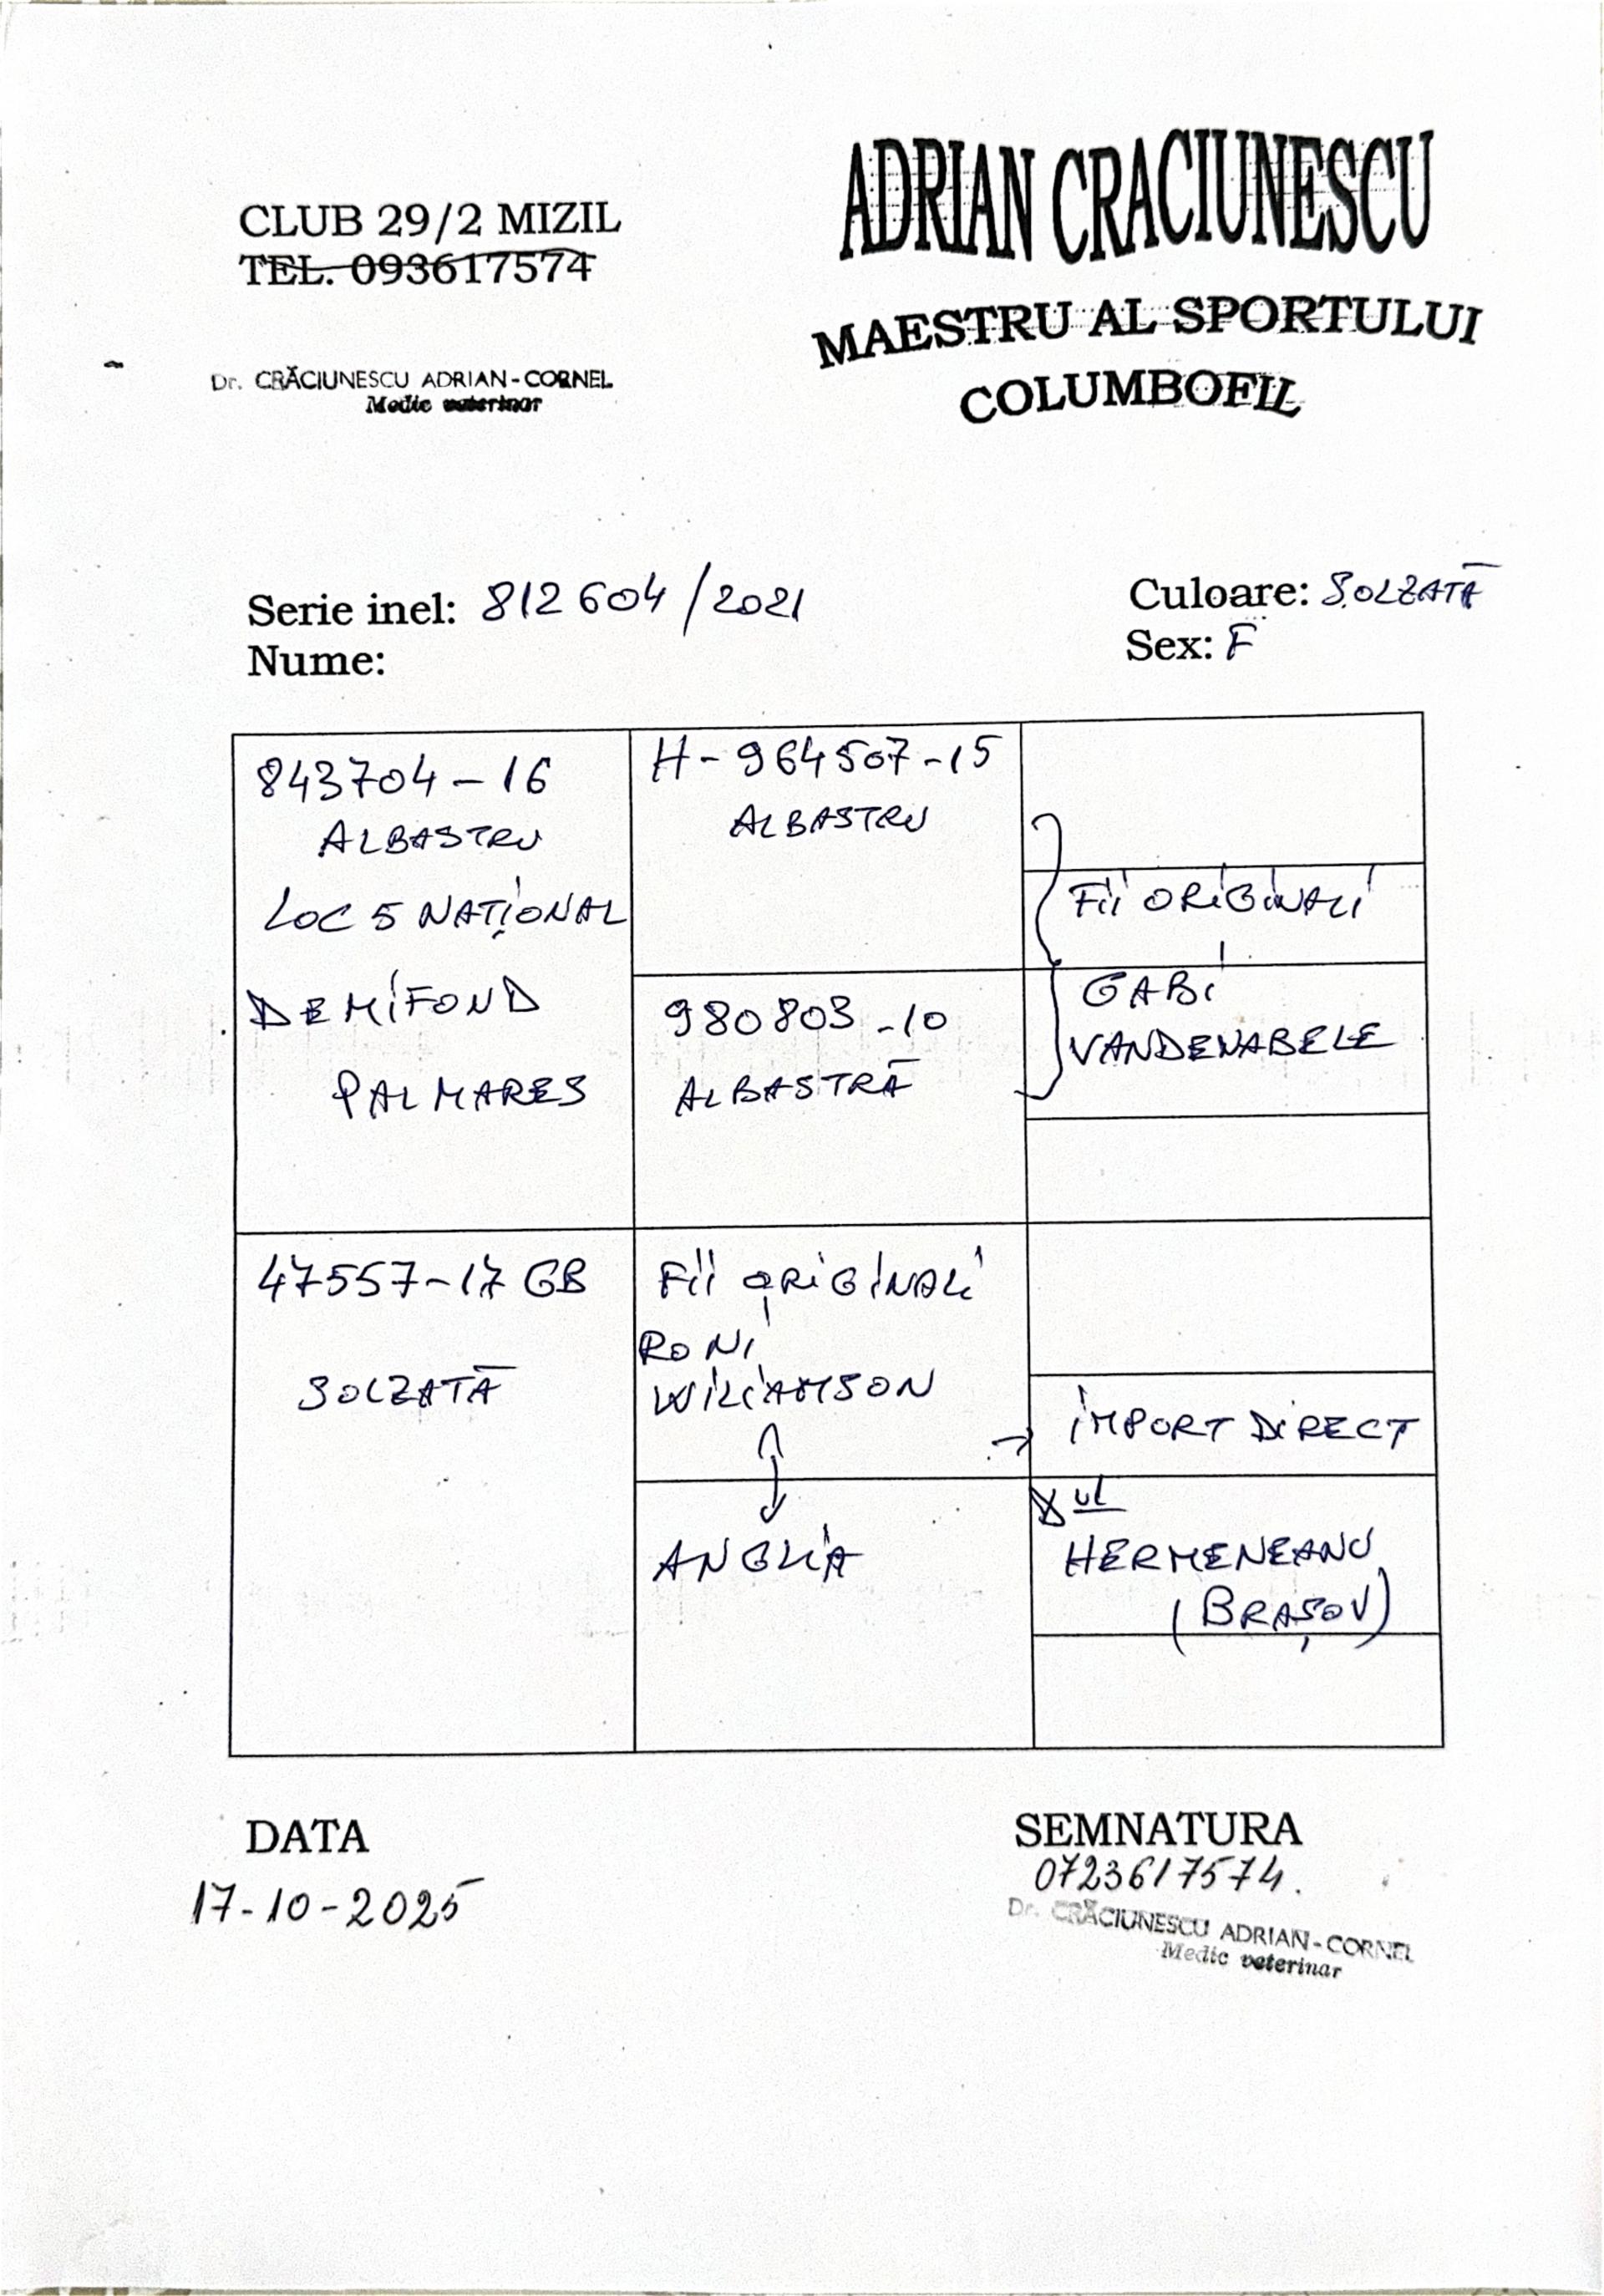 CLUB 29/2 MIZIL
TEL. 093617574
Dr. CRĂCIUNESCU ADRIAN-CORNEL
Medic veterinar
ADRIAN CRACIUNESCU
MAESTRU AL SPORTULUI
COLUMBOFIL
Serie inel: 812604/2021
Nume:
Culoare: SOLZATĂ
Sex: F
843704-16
ALBASTRU
LOC 5 NAȚIONAL
DEMIFOND
PALMARES
H-964507-15
ALBASTRU
980803-10
ALBASTRĂ
FII ORIGINALI
GABI
VANDENABELE
47557-17 GB
SOLZATĂ
FII ORIGINALI
RONI
WILIAMSON
ANGLIA
→ IMPORT DIRECT
Dul
HERMENEANU
(BRAȘOV)
DATA
17-10-2025
SEMNATURA
0723617574.
Dr. CRĂCIUNESCU ADRIAN-CORNEL
Medic veterinar